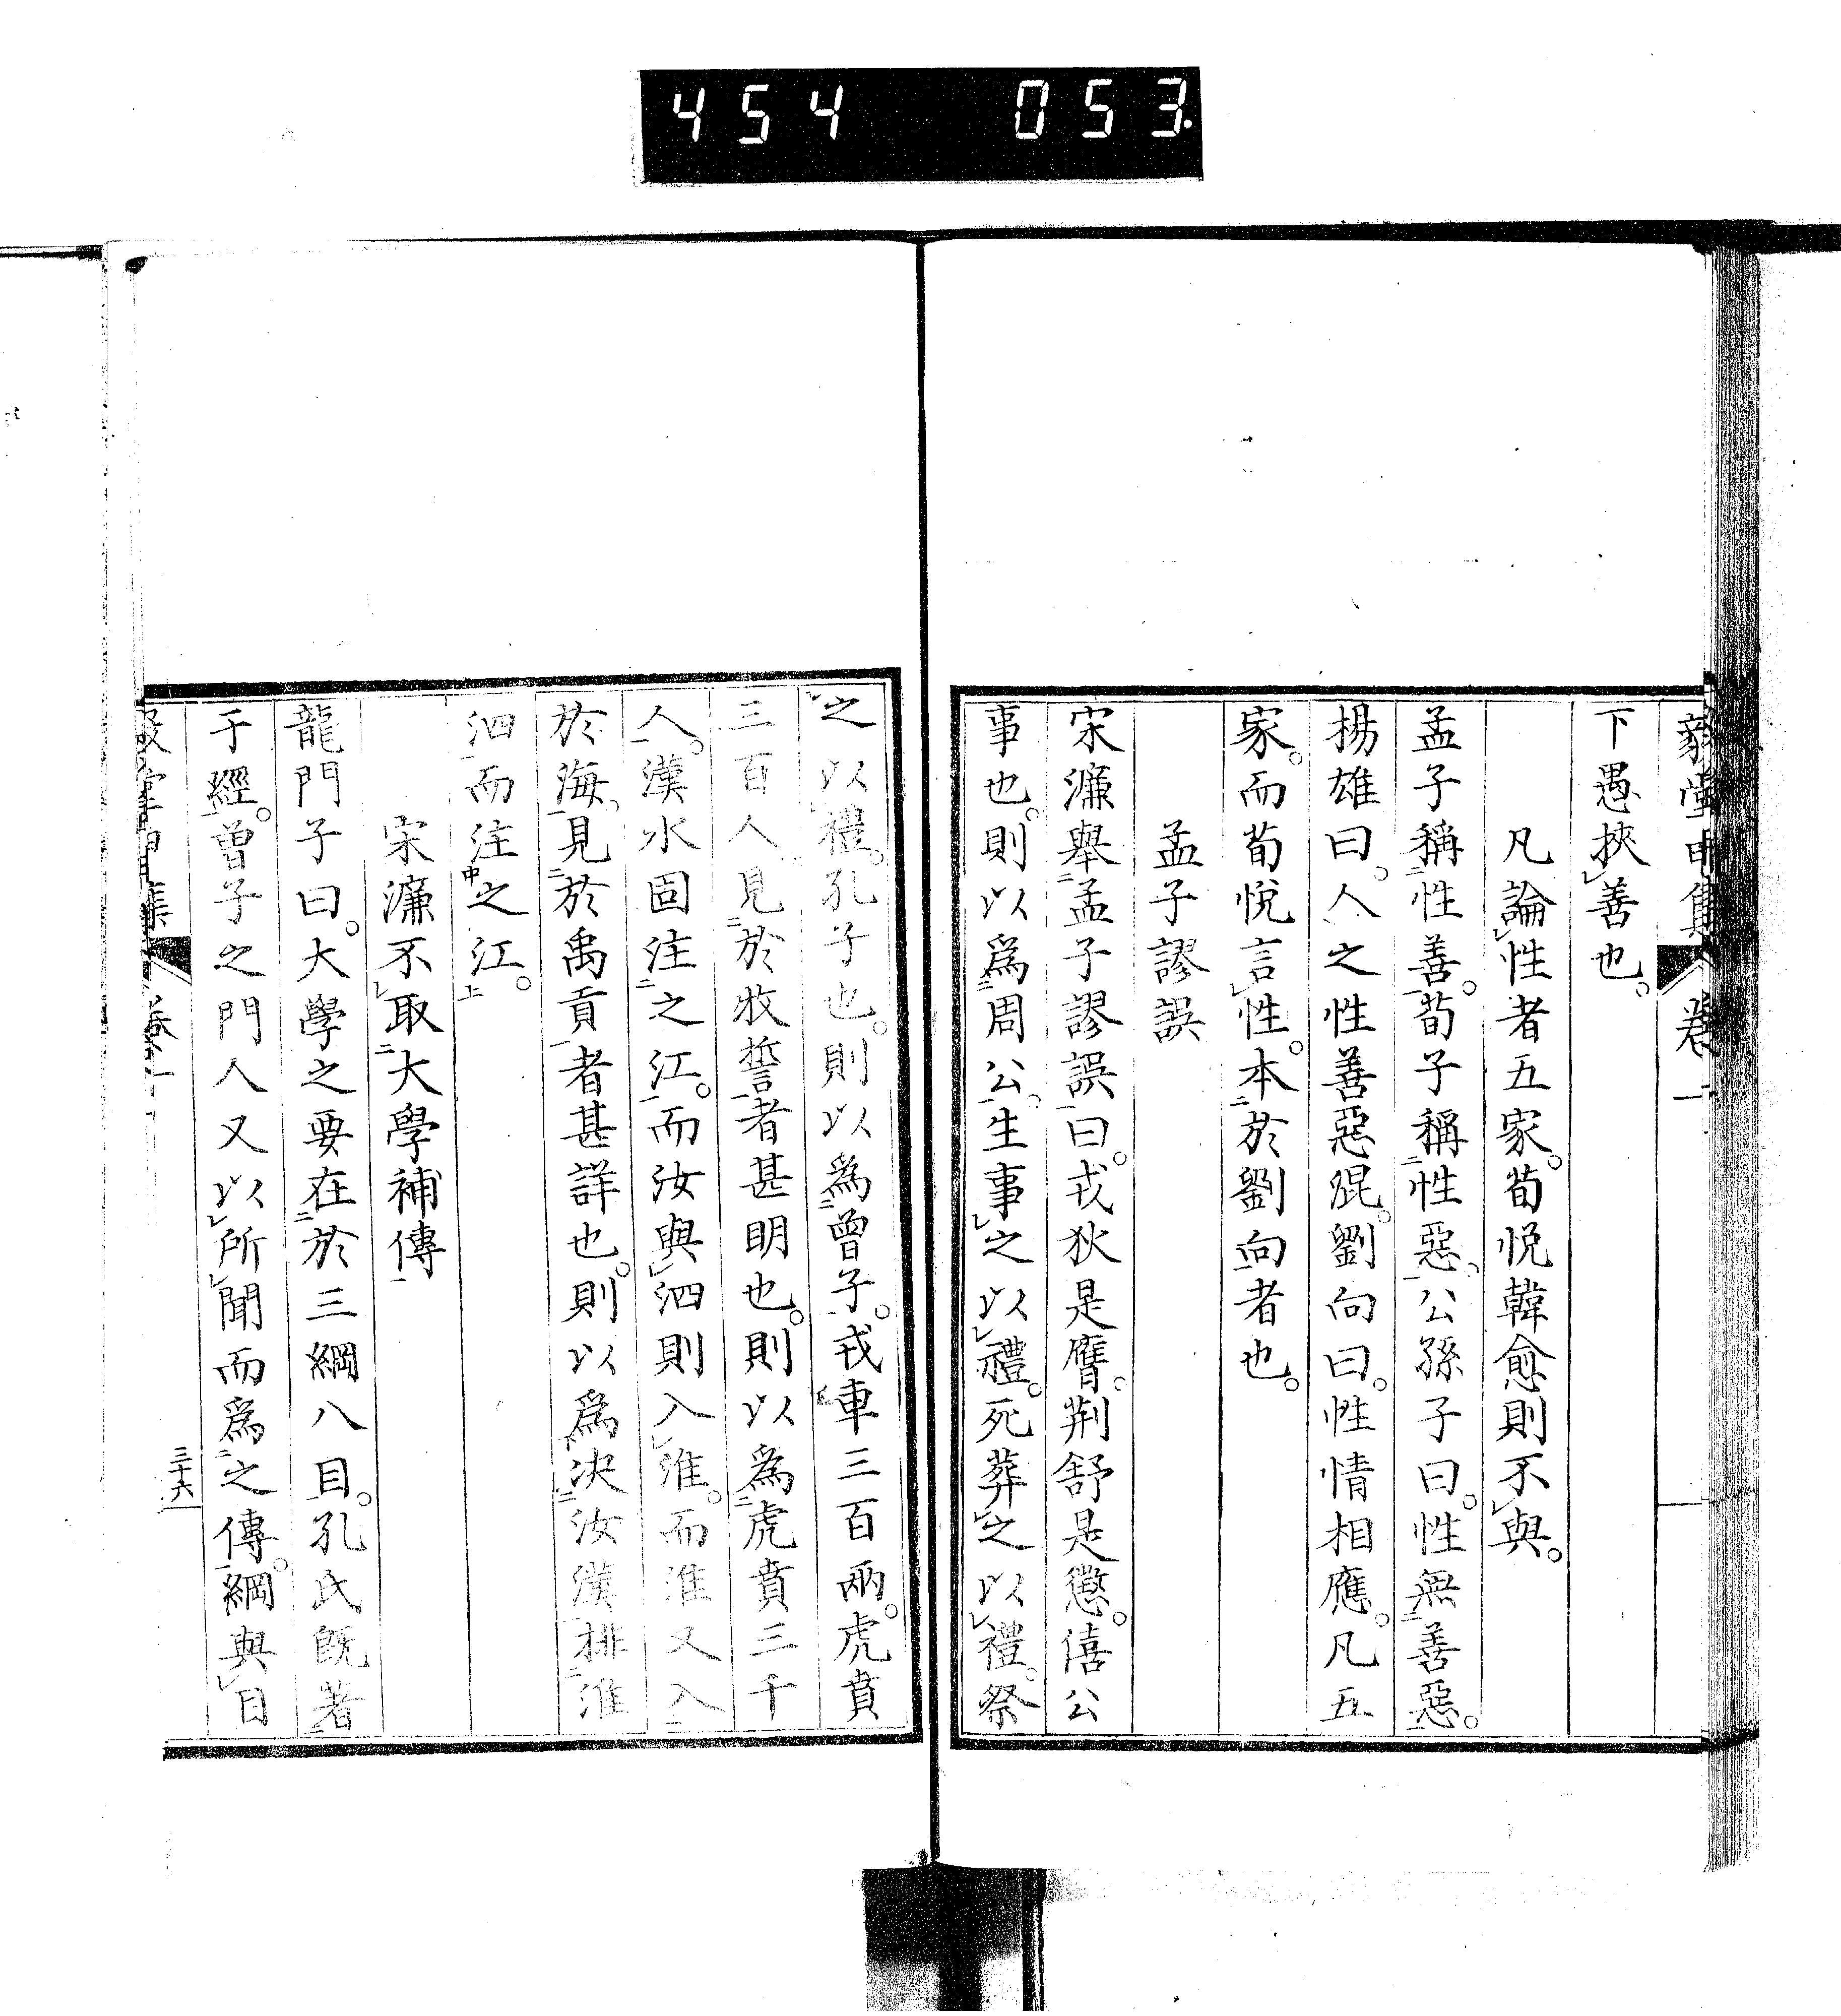 454 053.
下愚挾善也。
凡論性者五家。荀悅韓愈則不與。
孟子稱性善。荀子稱性惡。公孫子曰。性無善惡。
楊雄曰。人之性善惡混。劉向曰。性情相應。凡五
家。而荀悅言性。本於劉向者也。
孟子謬誤
宋濂舉孟子謬誤曰。戎狄是膺。荆舒是懲。僖公
事也。則以爲周公。生事之以禮。死葬之以禮。祭
之以禮。孔子也。則以爲曾子。戎車三百兩。虎賁
三百人。見於牧誓者甚明也。則以爲虎賁三千
人。漢水固注之江。而汝與泗則入淮。而淮又入
於海。見於禹貢者甚詳也。則以爲决汝漢排淮
泗而注之江。
宋濂不取大學補傳
龍門子曰。大學之要在於三綱八目。孔氏旣著
于經。曾子之門人又以所聞而爲之傳。綱與目
三十六